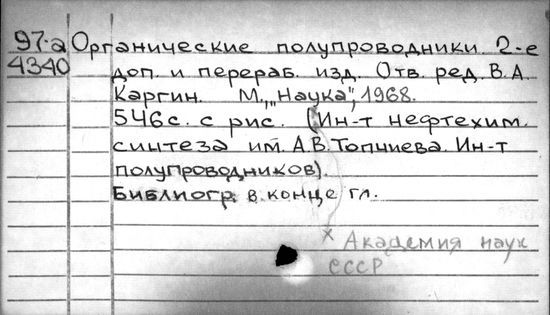 97-а Органические полупроводники. 2-е
4340 доп. и перераб. изд. Отв. ред. В.А.
Каргин. М., „Наука", 1968.
546 с. с рис. (Ин-т нефтехим.
синтеза им. А.В. Топчиева. Ин-т
полупроводников).
Библиогр. в конце гл.
× Академия наук
СССР